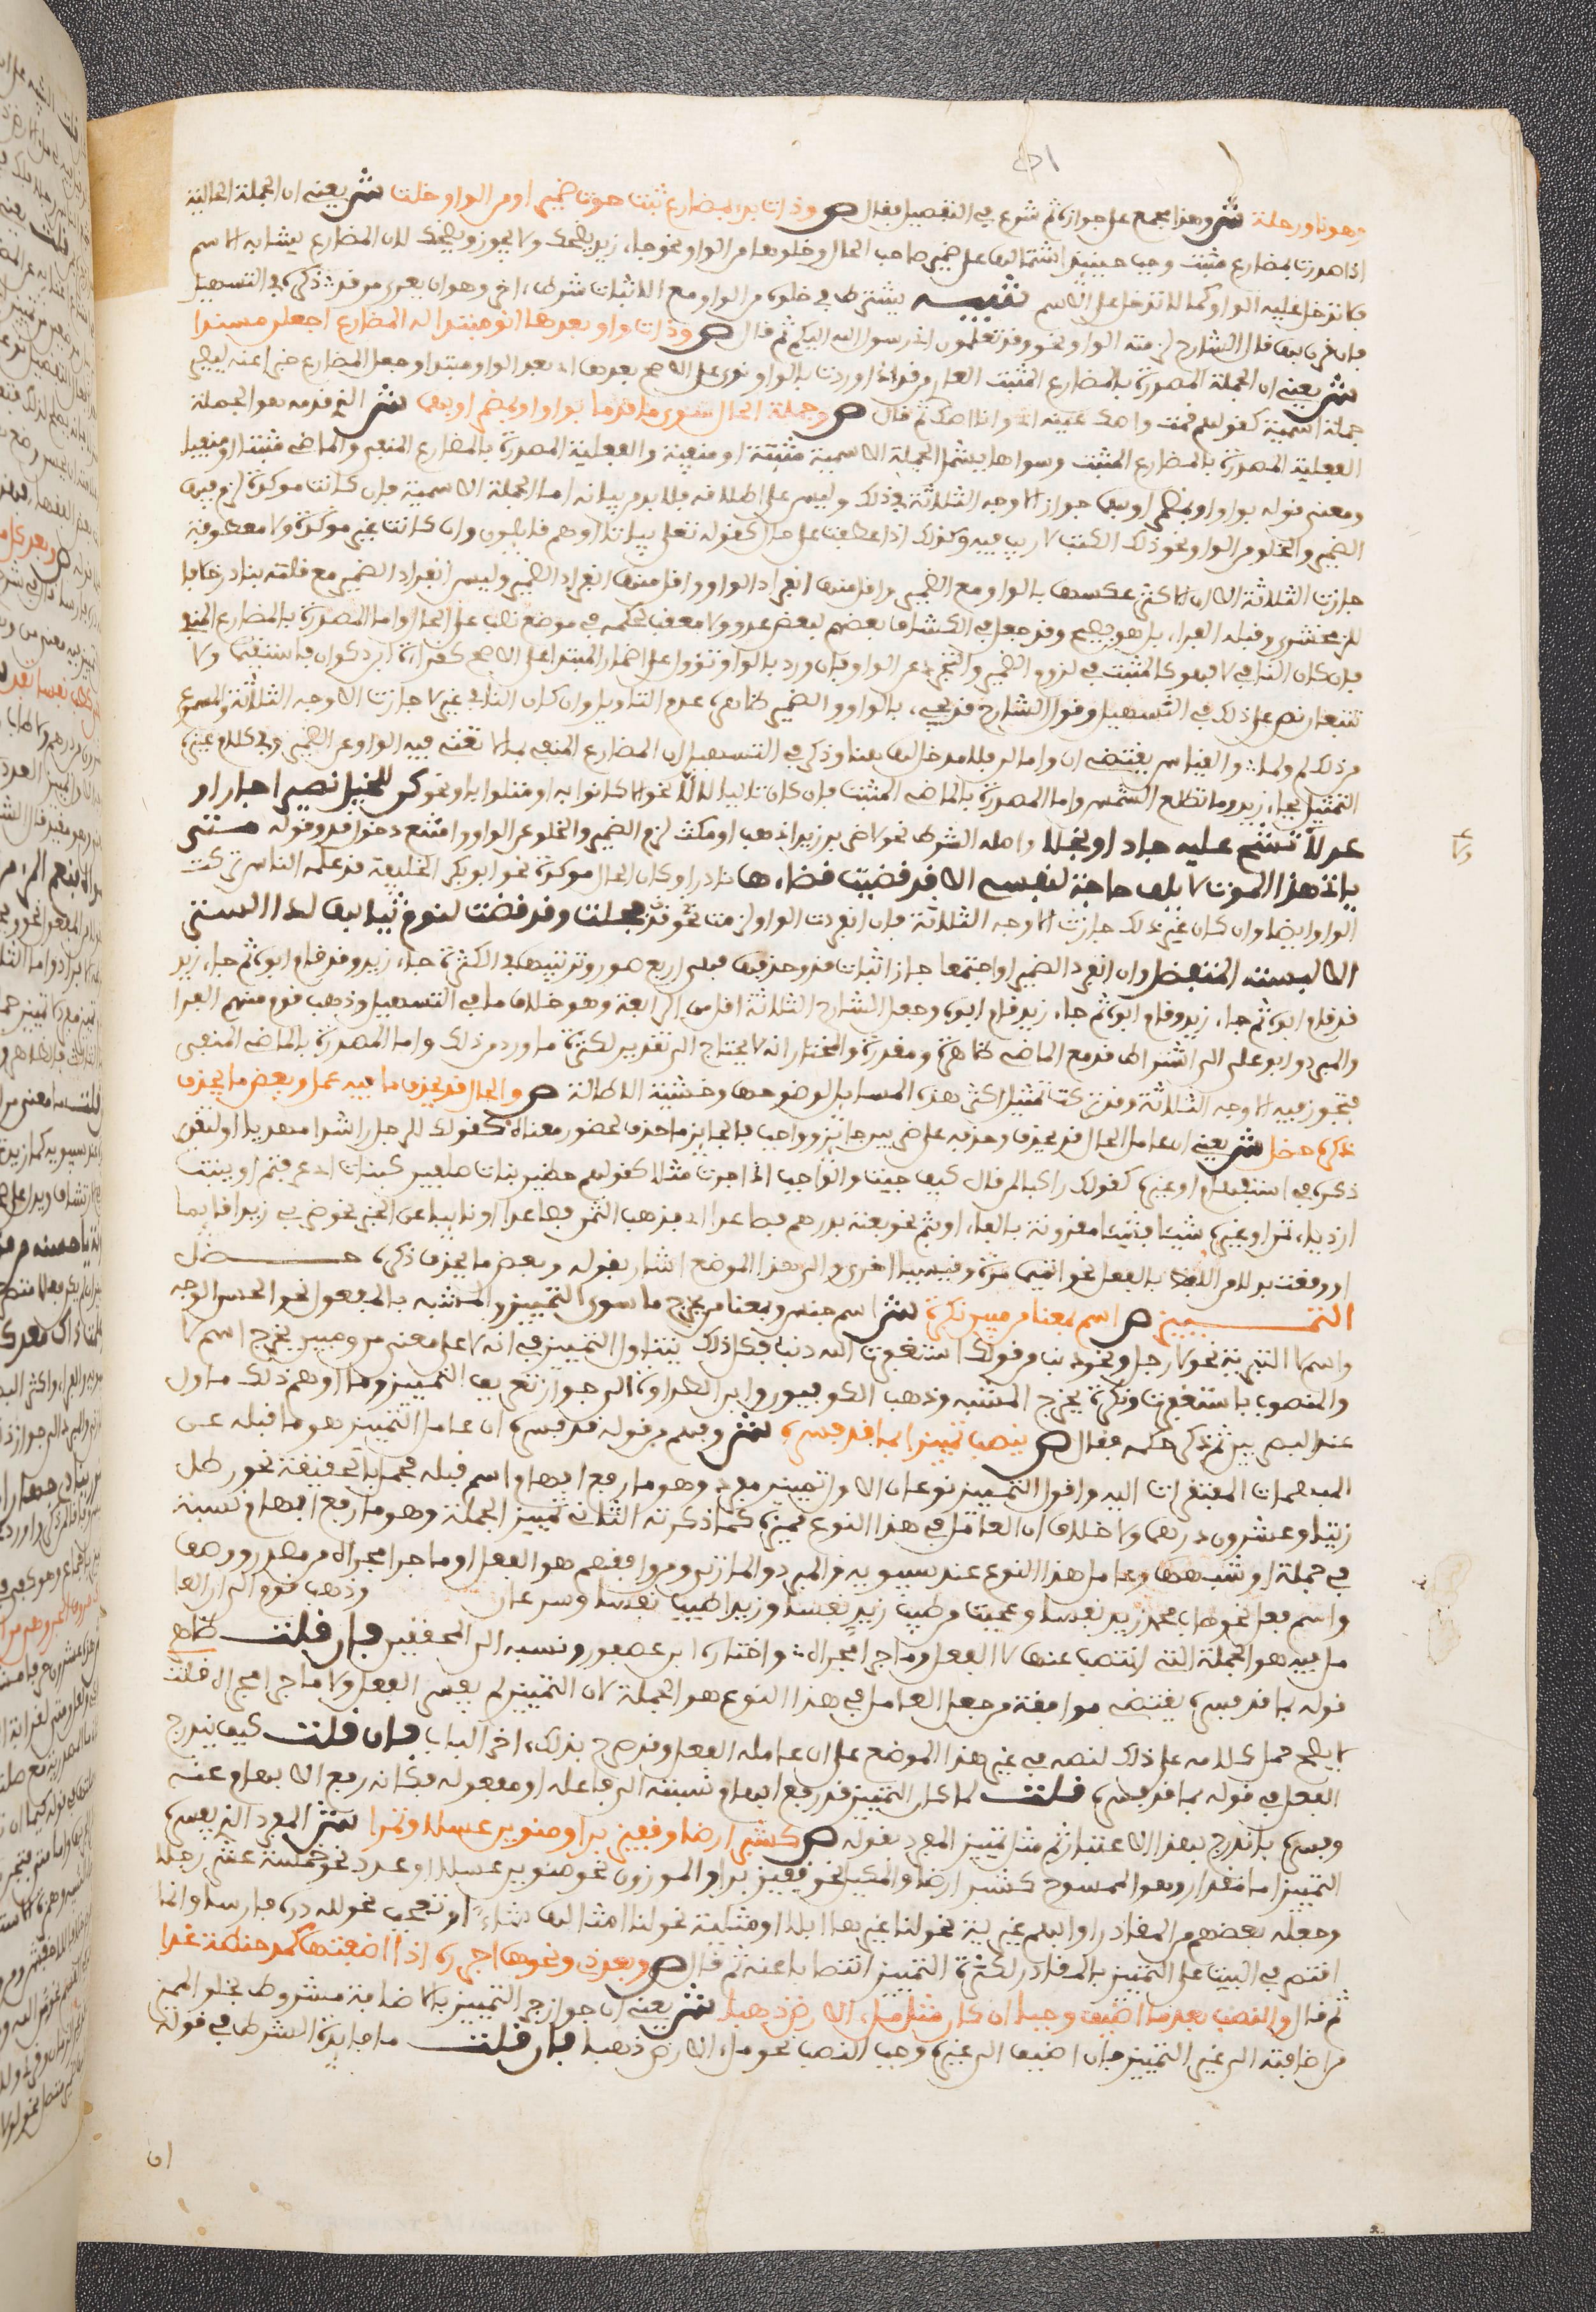 وهو ناو رحلة ش وهذا مجمع على جوازه ثم شرع في التفصيل فقال ص وذات بدء بمضارع ثبت حوت ضميرا ومن الواو خلت ش يعني ان الجملة الحالية
اذا صدرت بمضارع مثبت وجب حينئذ اشتمالها على ضمير صاحب الحال وخلوها من الواو نحو جاء زيد يضحك ولا يجوز ويضحك لان المضارع يشابه الاسم
فلا تدخل عليه الواو كما لا تدخل على الاسم تنبيه يشترط في خلوه من الواو مع الاثبات شرط اخر وهو ان يعرى من قد ذكره في التسهيل
فان قرن بها قال الشارح لزمته الواو نحو وقد تعلمون اني رسول الله اليكم ثم قال ص وذات واو بعدها انو مبتدا له المضارع اجعلن مسندا
ش يعني ان الجملة المصدرة بالمضارع المثبت العاري من قد اذا وردت بالواو نوي على الاصح بعدها اي بعد الواو مبتدا وجعل المضارع خبرا عنه ليصير
جملة اسمية كقولهم قمت واصك عينه اي وانا اصك ثم قال ص وجملة الحال سوى ما قدما بواو او بمضمر او بهما ش الذي قدمه هو الجملة
الفعلية المصدرة بالمضارع المثبت وسواها يشمل الجملة الاسمية مثبتة او منفية والفعلية المصدرة بالمضارع المنفي والماضي مثبتا او منفيا
ومعنى قوله بواو او بمضمر او بهما جواز الاوجه الثلاثة في ذلك وليس على اطلاقه فلا بد من بيانه اما الجملة الاسمية فان كانت موكدة لزم فيها
الضمير والخلو من الواو نحو ذلك الكتب لا ريب فيه وكذلك اذا عطفت على حال كقوله تعلى بياتا او هم قايلون وان كانت غير موكدة ولا معطوفة
جازت الثلاثة الا ان الاكثر عكسها بالواو مع الضمير واقل منها انفراد الواو واقل منها انفراد الضمير وليس انفراد الضمير مع قلته بنادر خلافا
للزمخشري وقبله الفراء بل هو فصيح وقد جعل في الكشاف بعضهم لبعض عدو ولا معقب لحكمه في موضع نصب على الحال واما المصدرة بالمضارع المنفي
فان كان النافي لا فهو كالمثبت في لزوم الضمير والتجرد عن الواو فان ورد بالواو تؤول على اضمار المبتدا على الاصح كقراءة ابن ذكوان فاستقيما ولا
تتبعان نص على ذلك في التسهيل وقول الشارح قد يجيء بالواو والضمير ظاهره عدم التاويل وان كان النافي غير لا جازت الاوجه الثلاثة والمسموع
من ذلك لم ولما والقياس يقتضي ان واما لن فلا مدخل لها هنا وذكر في التسهيل ان المضارع المنفي بلما لا تغني فيه الواو عن الضمير وفي كلام غيره
التمثيل بجاء زيد وما تطلع الشمس واما المصدرة بالماضي المثبت فان كان تاليا لالا نحو الا كانوا به او متلوا باو نحو كن للخليل نصيرا جار او
عدلا لا تشح عليه جاد او بخلا واصله الشرط نحو لاضربن زيدا ذهب او مكث لزم الضمير والخلو عن الواو وامتنع دخول قد وقوله متى
يات هذا الموت لا يلف حاجة لنفسي الا قد قضيت قضاءها نادر او كان الحال موكدة نحو ابو بكر الخليفة قد علمه الناس تركت
الواو ايضا وان كان غير ذلك جازت الاوجه الثلاثة فان انفردت الواو لزمت قد نحو فجئت وقد نضت لنوم ثيابها لدا الستر
الا لبسة المتفضل وان انفرد الضمير او اجتمعا جاز اثبات قد وحذفها فهي اربع صور وترتيبها في الكثرة جاء زيد وقد قام ابوه ثم جاء زيد
قد قام ابوه ثم جاء زيد وقام ابوه ثم جاء زيد قام ابوه وجعل الشارح الثالثة اقل من الرابعة وهو خلاف ما في التسهيل وذهب قوم منهم الفراء
والمبرد وابو علي الى اشتراط قد مع الماضي ظاهرة او مقدرة والمختار انه لا يحتاج الى تقدير لكثرة ما ورد من ذلك واما المصدرة بالماضي المنفي
فتجوز فيه الاوجه الثلاثة وقد تركت تمثيل اكثر هذه المسايل لوضوحها وخشية الاطالة ص والحال قد يحذف ما فيه عمل وبعض ما يحذف
ذكره حظل ش يعني ان عامل الحال قد يحذف وحذفه على ضربين جائز وواجب فالجايز ما حذف لحضور معناه كقولك للراحل راشدا مهديا او لتقدم
ذكره في استفهام او غيره كقولك راكبا لمن قال كيف جيت والواجب اذا جرت مثلا كقولهم حظيين بنات صلفين كنات اي عرفتم او بينت
ازدياد ثمن او غيره شيئا فشيئا مقرونة بالفاء او ثم نحو بعته بدرهم فصاعدا اي فذهب الثمن صاعدا او نايبا عن الخبر نحو ضربي زيدا قايما
او وقعت بدلا من اللفظ بالفعل نحو اتميميا مرة وقيسيا اخرى والى هذا الموضع اشار بقوله وبعض ما يحذف ذكره حظل
التمييز ص اسم بمعنى من مبين نكرة ش اسم جنس وبمعنى من يخرج ما سوى التمييز والمشبه بالمفعول نحو الحسن الوجه
واسم لا التبرية نحو لا رجل ونحو ذنبا من قولك استغفرت الله ذنبا فكل ذلك يشارك التمييز في انه على معنى من ومبين يخرج اسم لا
والمنصوب باستغفرت ونكرة يخرج المشبه وذهب الكوفيون وابن الطراوة الى جواز تعريف التمييز وما اوهم ذلك ماول
عند البصريين ثم ذكر حكمه فقال ص ينصب تمييزا بما قد فسره ش وفهم من قوله قد فسره ان عامل التمييز هو ما قبله من
المبهمات المفتقرات اليه واقول التمييز نوعان الاول تمييز مفرد وهو ما رفع ابهام اسم قبله مجمل الحقيقة نحو رطل
زيتا وعشرون درهما ولا خلاف ان العامل في هذا النوع مميزه كما ذكر ته الثاني تمييز الجملة وهو ما رفع ابهام نسبة
في جملة او شبهها وعامل هذا النوع عند سيبويه والمبرد والمازني ومن وافقهم هو الفعل او ما جرى مجراه من مصدر ووصف
واسم فعل نحو طاب محمد نفسا وعجبت من طيب زيد نفسا وزيد طيب نفسا وسرعان وذهب قوم الى ان العامل
ما فيه هو الجملة التي انتصب عنها لا الفعل وما جرى مجراه واختاره ابن عصفور ونسبه الى المحققين فان قلت ظاهر
قوله بما قد فسره يقتضي موافقة من جعل العامل في هذا النوع هو الجملة لان التمييز لم يفسر الفعل ولا ما جرى مجراه قلت
لا يصح حمل كلامه على ذلك لنصه في غير هذا الموضع على ان عامله الفعل وقد صرح بذلك اخر الباب فان قلت كيف يندرج
الفعل في قوله بما قد فسره قلت لما كان التمييز قد رفع ابهام نسبته الى فاعله او مفعوله فكانه رفع الابهام عنه
وفسره فاندرج بهذا الاعتبار ثم مثل تمييز المفرد بقوله ص كشبر ارضا وقفيز برا ومنوين عسلا وتمرا ش المفرد الذي يفسره
التمييز اما مقدار وهو الممسوح كشبر ارضا والمكيل نحو قفيز برا والموزون نحو منوين عسلا او عدد نحو خمسة عشر رجلا
وجعله بعضهم من المقادر او ابهم غيرية نحو لنا غيرها ابلا او مثلية نحو لنا امثالها شاء او تعجب نحو لله دره فارسا وانما
اقتصر في البيت على التمييز بالمقادر لكثرة التمييز انتصابا عنه ثم قال ص وبعد ذي ونحوها اجرره اذا اضفتها كمد حنطة غذا
ثم قال والنصب بعد ما اضيف وجبا ان كان مثل ملء الارض ذهبا ش يعني ان جواز جر التمييز بالاضافة مشروط بخلو المميز
من اضافته الى غير التمييز فان اضيف الى غيره وجب النصب نحو ملء الارض ذهبا فان قلت ما فايدة الشرط في قوله